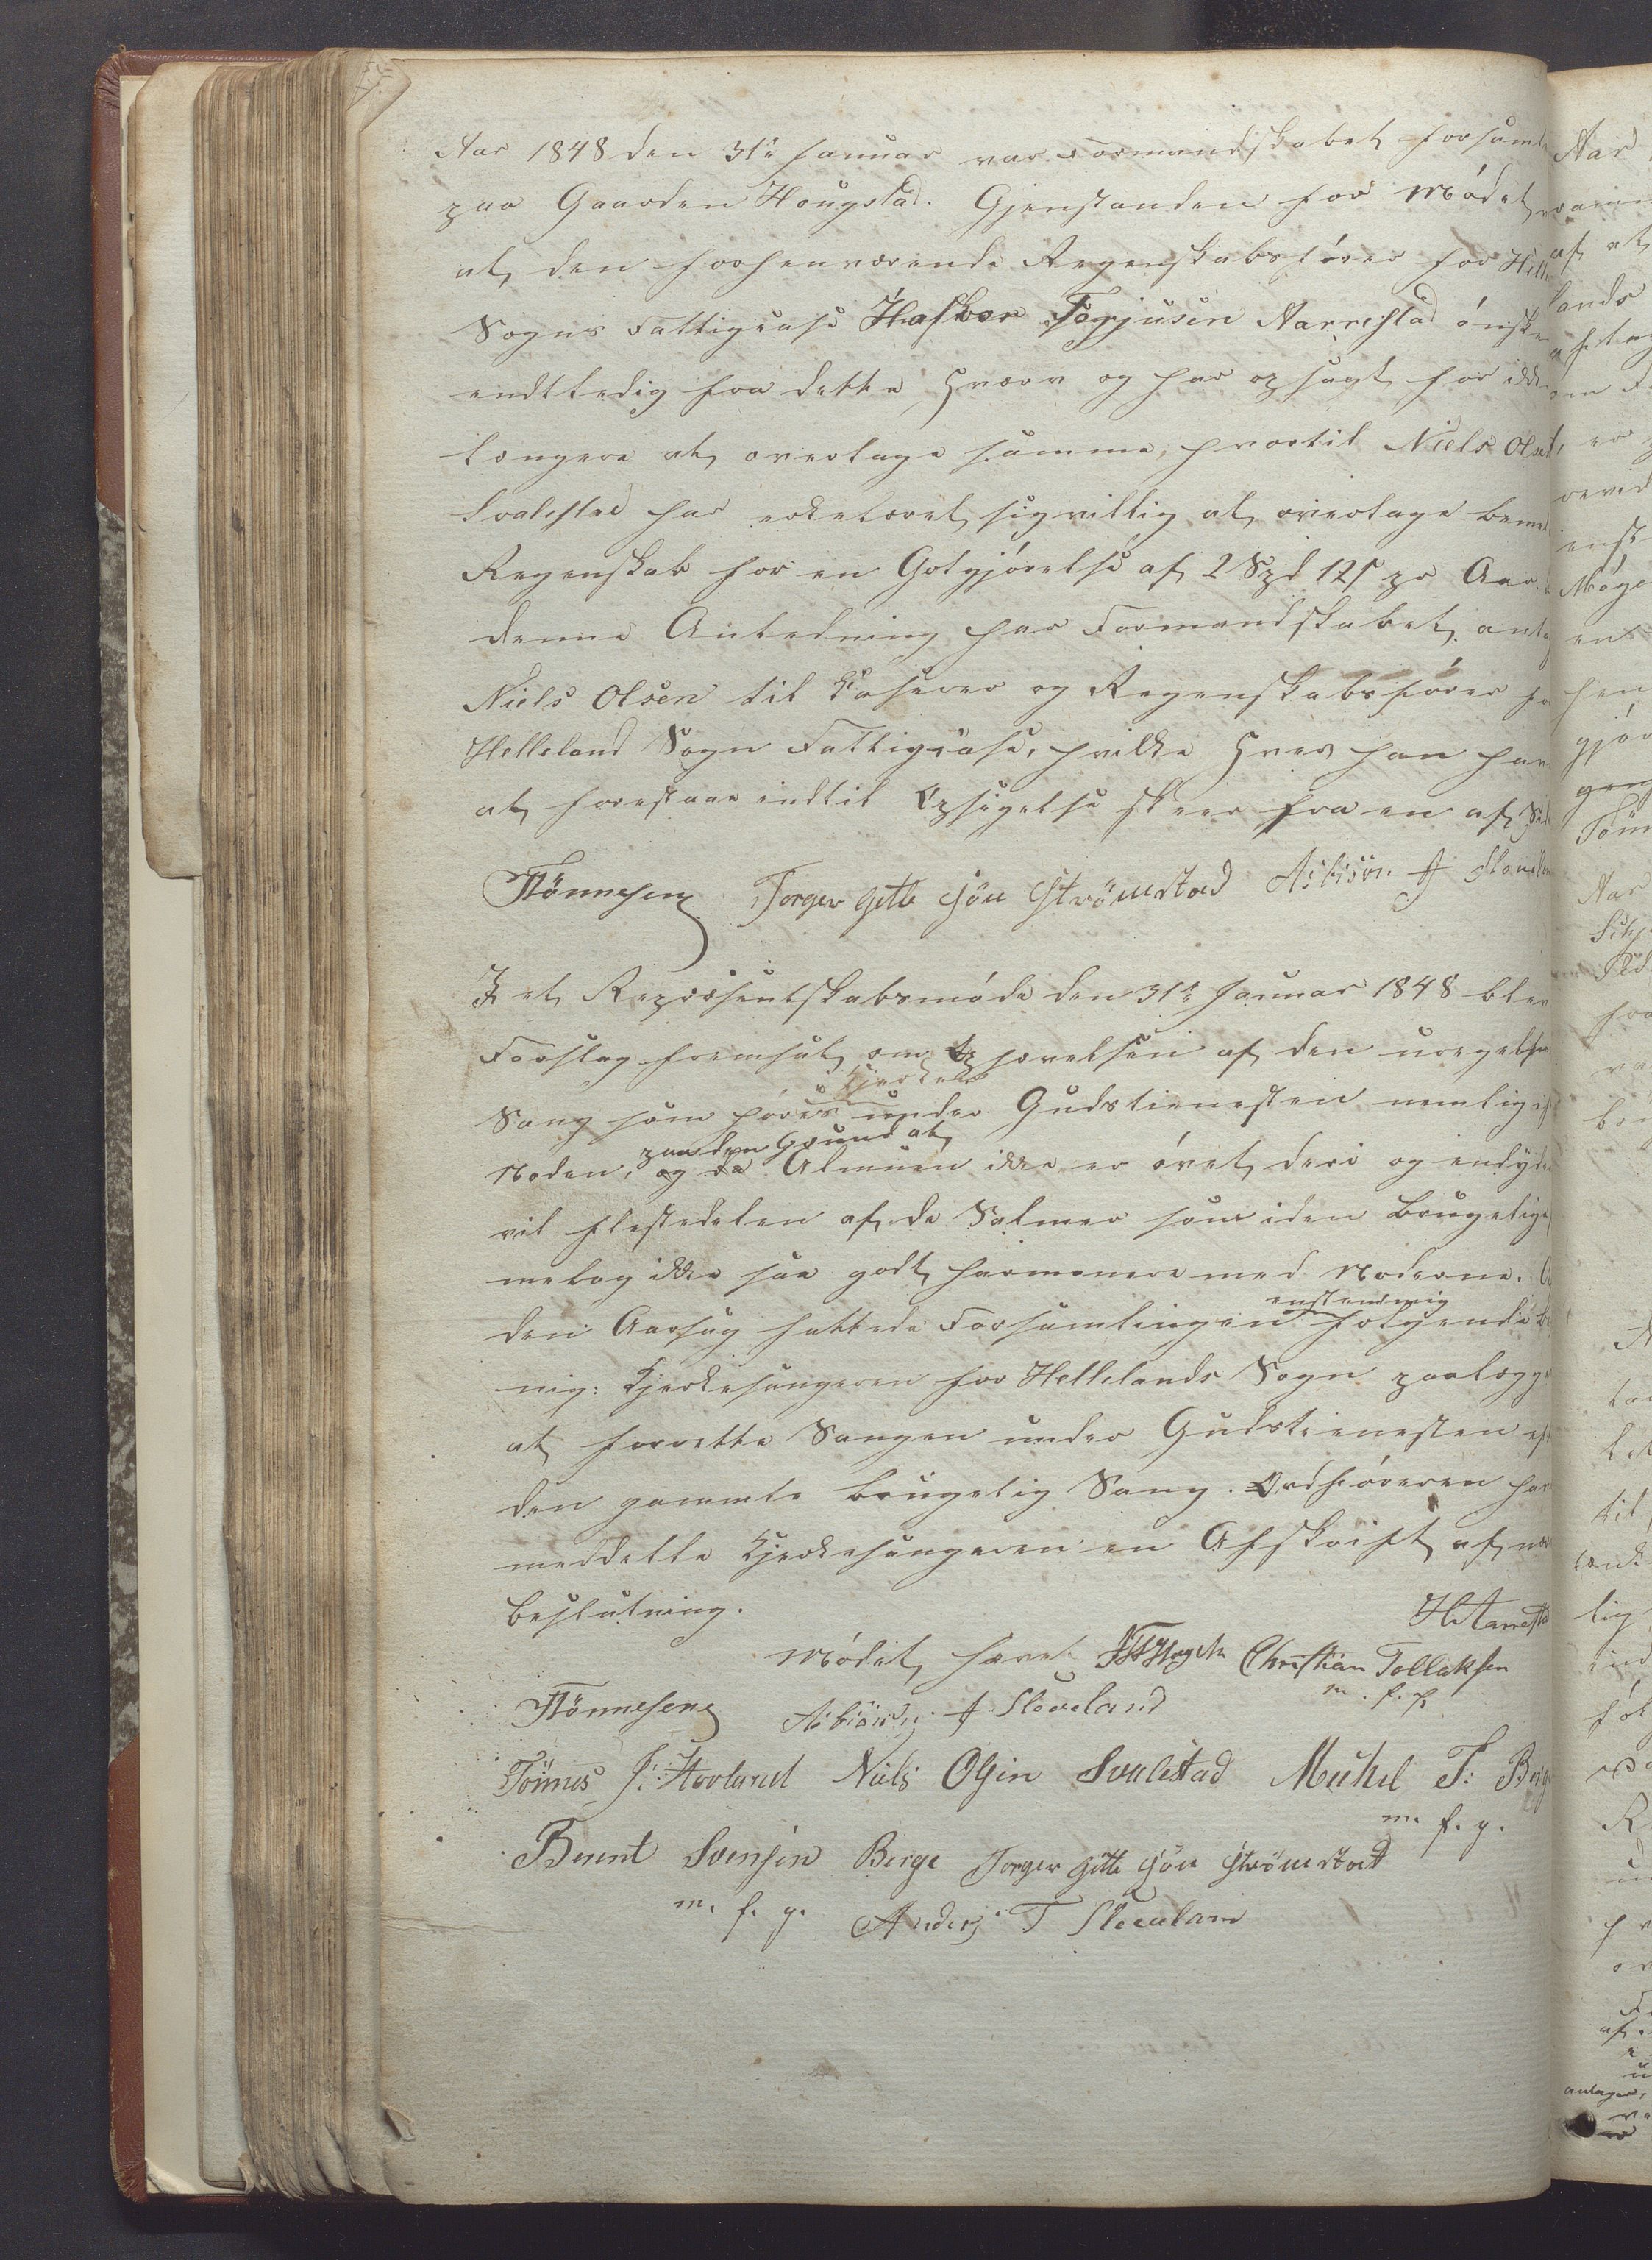 Aar 1848 den 31te Januar var Formandskabet forsaml
paa Gaarden Haugstad. Gjenstanden for Mødet
at den forhenværende Regenskabsfører for Hell
Sogns Fattigcase Hafkor Torjusen Aarrestad ønske
endtledig fra dette Hværv og har opsagt for ikke
længere at overtage samme, hvortil Niels Olsen
Svalestad har erkelæret sig villig at overtage bem
Regenskab for en Gotgjørelse af 2 Spd 12 s pr Aar.
denne Anledning har Formandskabet anta
Niels Olsen til Kaserer og Regenskabsfører for
Helleland Sogn Fattigcase, hvilke Hverv han har
at forestaae indtil Opsigelse skeer fra en af Sid
TTönnesen Torger Gitle Sön Strömstad Asbiörn A Sloveland
I et Repræsentskabsmøde den 31te Januar 1848 blev
Forslag fremsat om Ophævelsen af den uregelse
i Kjerken
Sang som høres under Gudstienesten nemlig ef
paa den Grund at
Noden, og da Almuen ikke er øvet deri og endyde
vil flestedelen af de Salmer som iden brugelige
mebog ikke saa godt harmonere med Noderne.
enstemmig
den Aarsag fattede Forsamlingen følgende Be
nig: Kjerkesangeren for Hellelands Sogn paalægge
at forrette Sangen under Gudstienesten ef
den gammle brugelig Sang. Ordføreren har
meddelle Kjerkesangeren en Afskrift af næ
beslutning.
H. Aarrestad
Mødet hævet Christian Tollaksen
m. f. p
TTönnesen Asbiörn A Sloveland
Tönnes J: Hovland Niels Olsen Svalestad Mickel T: Berge
m. f. p.
Berent Svensen Berge Torger Gitle Sön Strömstad
m. f. p. Anders T Sloveland